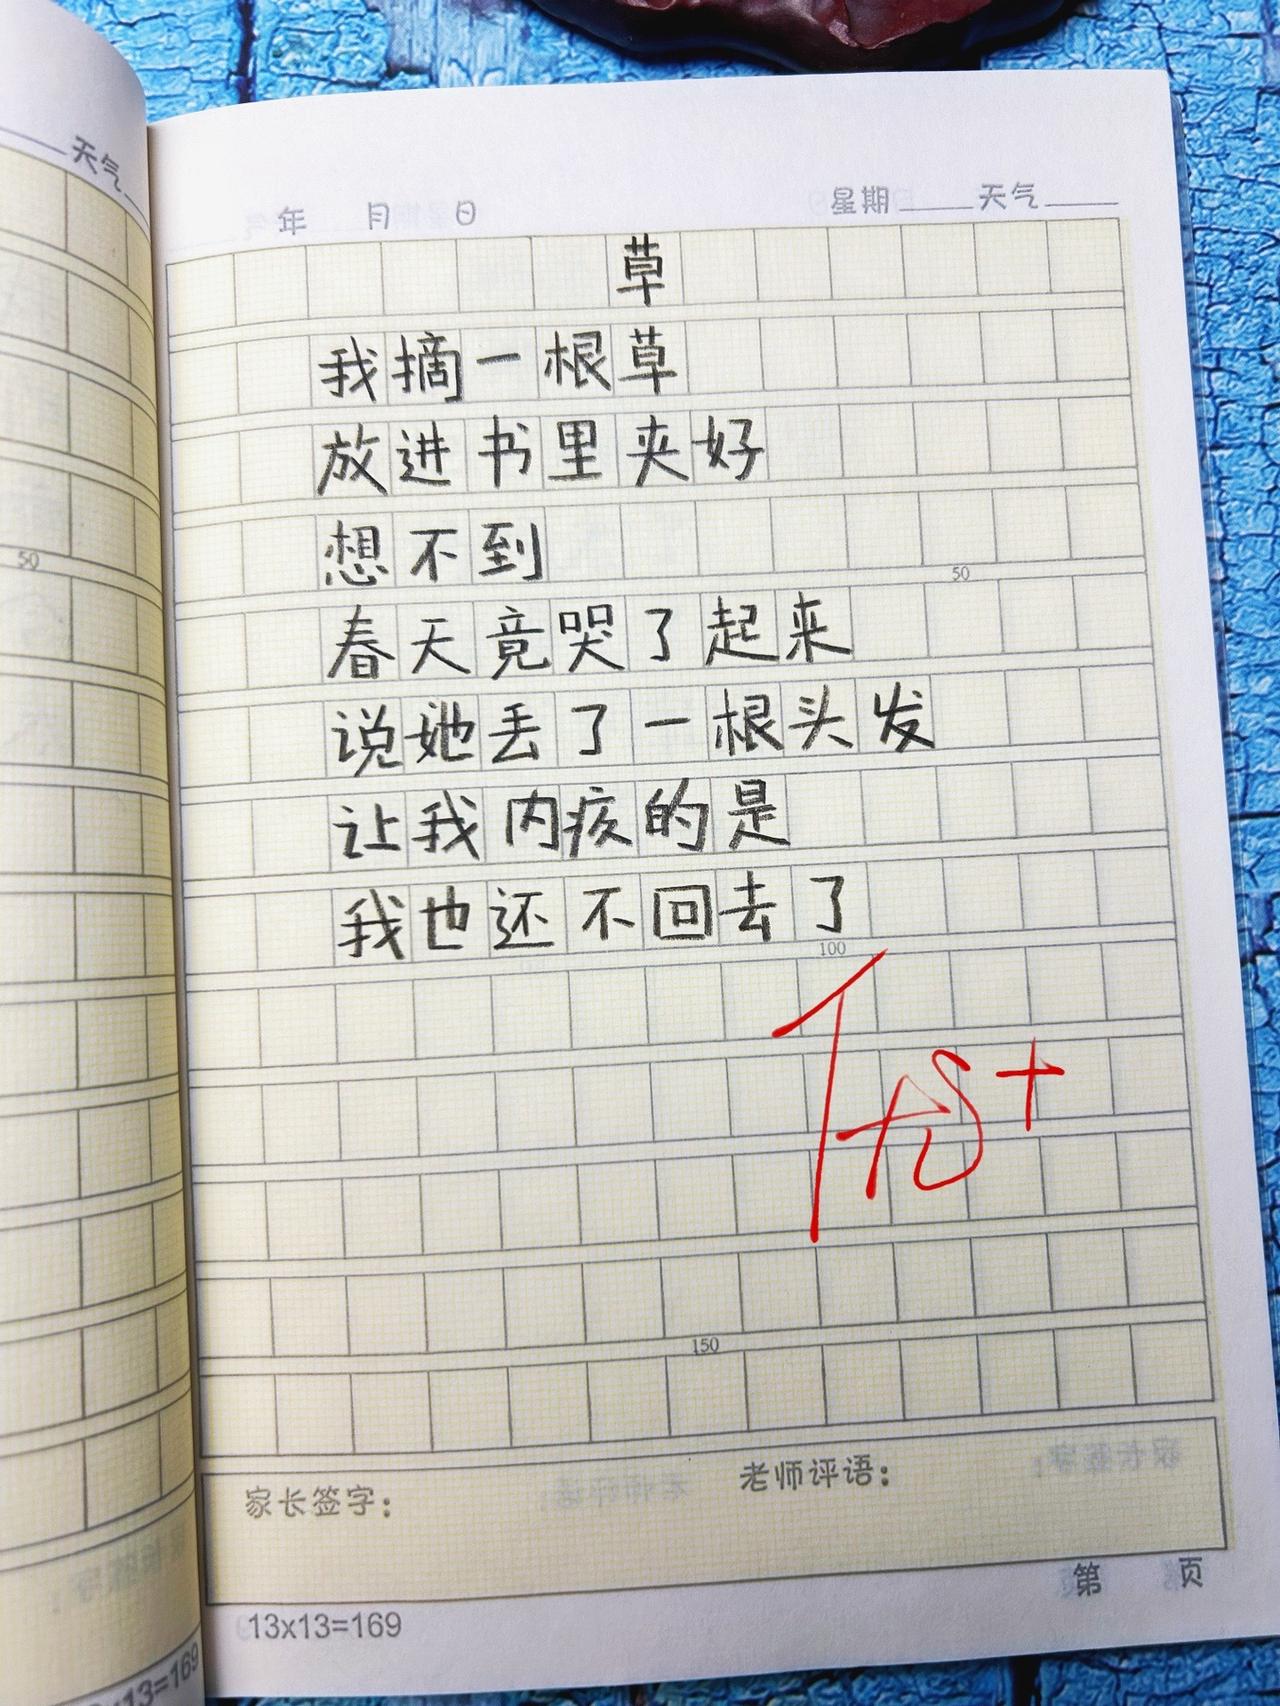 天气
50
年 月 日 星期 天气
草
我摘一根草
放进书里夹好
想不到
50
春天竟哭了起来
说她丢了一根头发
让我内疚的是
我也还不回去了
100
150
家长签字： 老师评语：
第 页
13x13=169
13=169